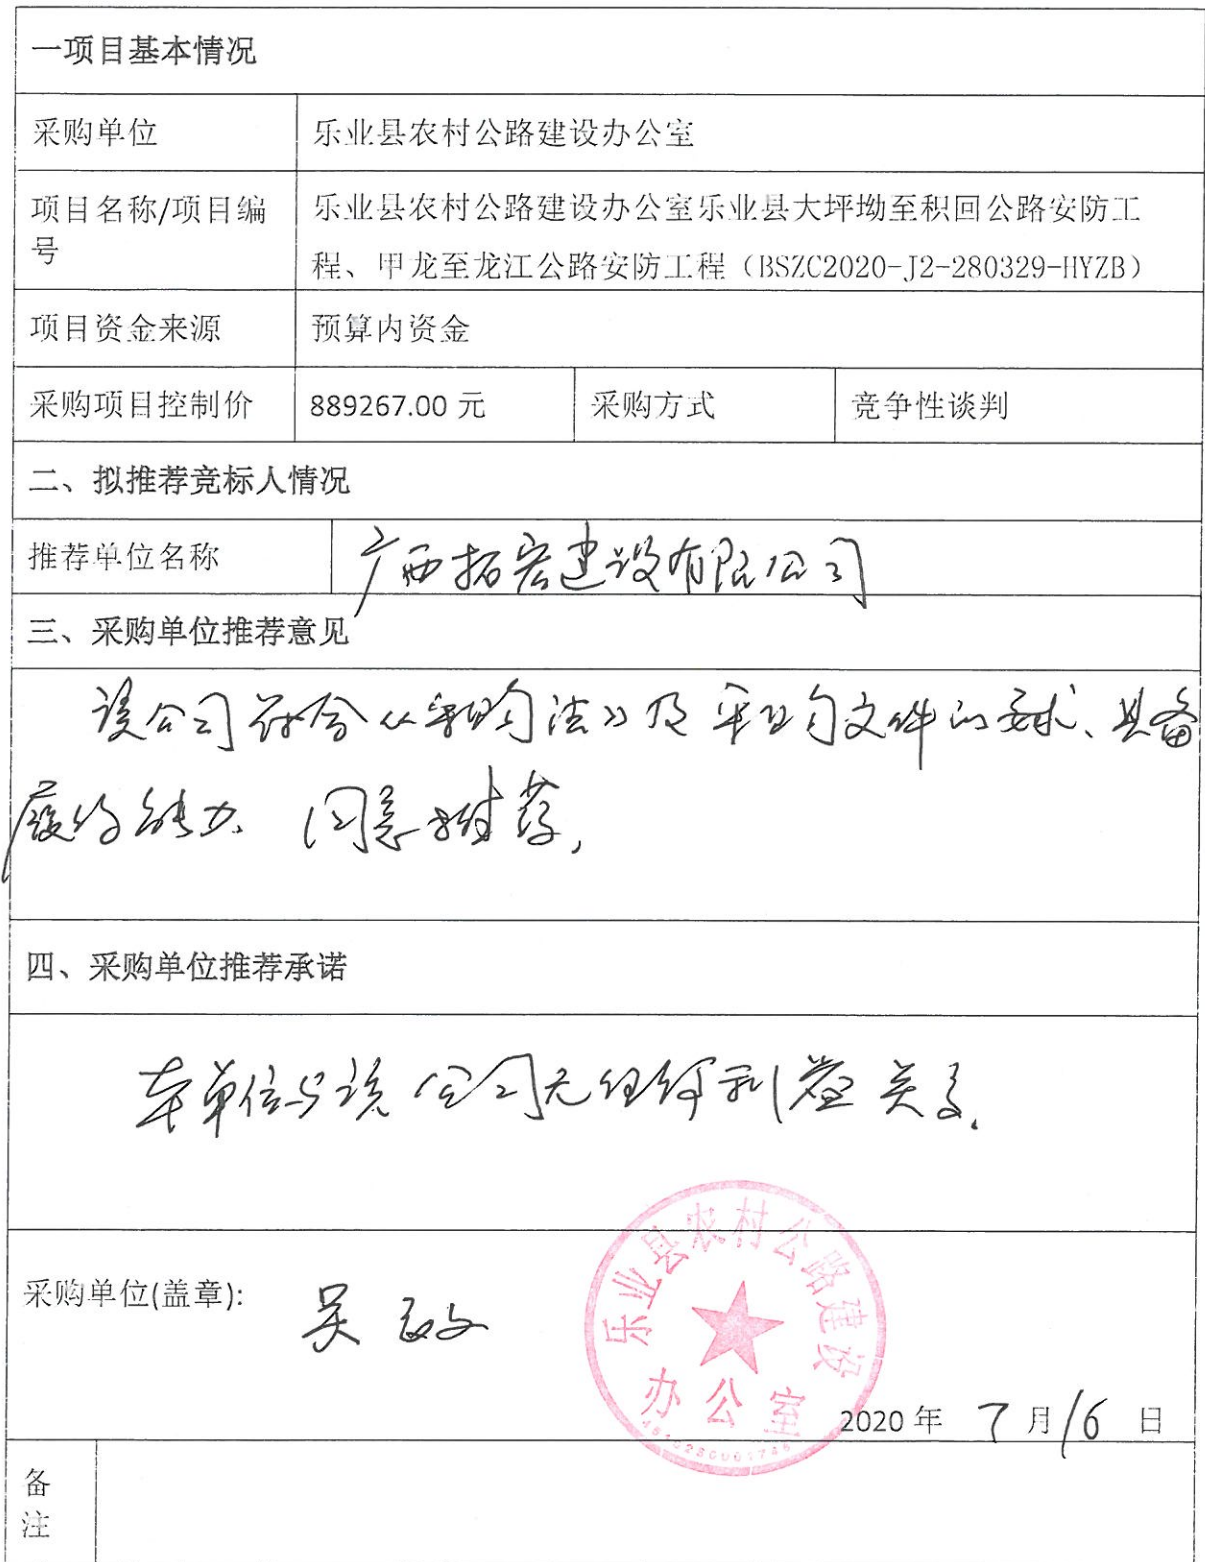 一项目基本情况
采购单位
乐业县农村公路建设办公室
项目名称/项目编
号
乐业县农村公路建设办公室乐业县大坪坳至积回公路安防工
程、甲龙至龙江公路安防工程（BSZC2020-J2-280329-HYZB）
项目资金来源
预算内资金
采购项目控制价
889267.00 元
采购方式
竞争性谈判
二、拟推荐竞标人情况
推荐单位名称
广西拓宏建设有限公司
三、采购单位推荐意见
该公司符合《采购法》及采购文件的要求、具备
履约能力. 同意推荐,
四、采购单位推荐承诺
本单位与该公司无任何利益关系.
采购单位(盖章):
吴
乐业县农村公路建设
办公室
2020 年 7 月 16 日
备
注